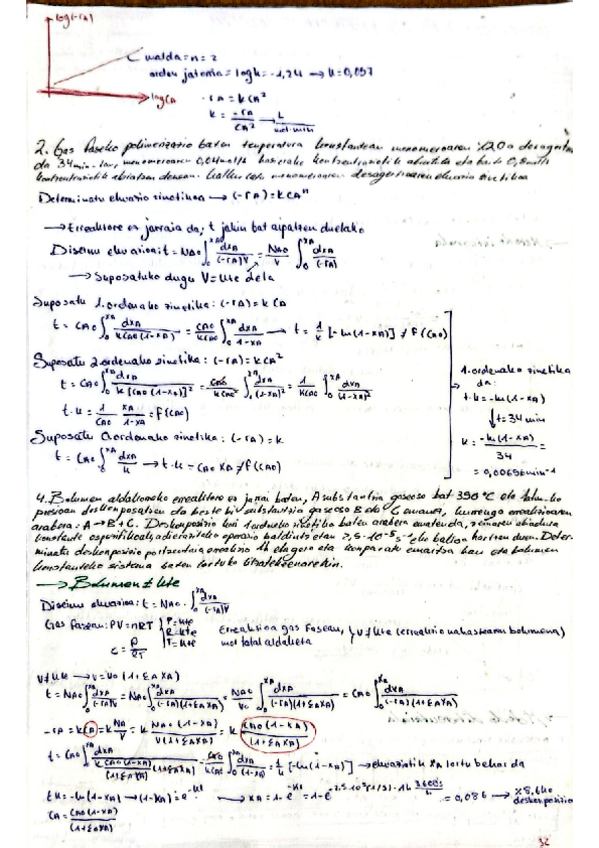 log(-rA)
malda = n = 2
orden jatorria = log k = -1,24 → k = 0,057
log CA
-rA = k CA²
k = -rA / CA² → L / mol·min
2. Gas faseko polimerizazio baten tenperatura konstantean monomeroaren %20a desagertzen
da 34 min-tan, monomeroaren 0,04 mol/L hasierako kontzentraziotik abiatuta eta baita 0,8 mol/L
kontzentraziotik abiatzen denean. monomeroaren desagertzearen ekuazio zinetikoa
Determinatu ekuazio zinetikoa → (-rA) = k CAⁿ
→ Erreaktore ez jarraia da; t jakin bat aipatzen duelako
Diseinu ekuazioa: t = NA0 ∫₀^XA dXA/(-rA)V = NA0/V ∫₀^XA dXA/(-rA)
→ Suposatuko dugu V = kte dela
Suposatu 1. ordenako zinetika: (-rA) = k CA
t = CA0 ∫₀^XA dXA/(k CA0 (1-XA)) = CA0/(k CA0) ∫₀^XA dXA/(1-XA) → t = 1/k [-ln(1-XA)] ≠ f(CA0)
Suposatu 2. ordenako zinetika: (-rA) = k CA²
t = CA0 ∫₀^XA dXA/(k [CA0 (1-XA)]²) = CA0/(k CA0²) ∫₀^XA dXA/(1-XA)² = 1/(k CA0) ∫₀^XA dXA/(1-XA)²
t·k = 1/CA0 · XA/(1-XA) = f(CA0)
Suposatu 0. ordenako zinetika: (-rA) = k
t = CA0 ∫₀^XA dXA/k → t·k = CA0 XA = f(CA0)
1. ordenako zinetika
da:
t·k = -ln(1-XA)
↓ t = 34 min
k = -ln(1-XA)/34 =
= 0,00656 min⁻¹
4. Bolumen aldakorreko erreaktore ez jarrai baten, A substantzia gaseoso bat 390 °C eta
presioan deskonposatzen da beste bi substantzia gaseoso B eta C emanez, hurrengo erreakzioaren
arabera: A → B + C. Deskonposizio hori 1. ordenako zinetika baten arabera ematen da, zeinaren abiadura
konstante espezifikoak, adierazitako operazio baldintzetan 2,5·10⁻⁵ s⁻¹-eko balioa hartzen duen. Deter-
minatu deskonposizio portzentaia erreakzio 1h eta gero eta konparatu emaitza hau eta bolumen
konstanteko sistema baten lortuko litzatekeenarekin.
→ Bolumen ≠ kte
Diseinu ekuazioa: t = NA0 · ∫₀^XA dXA/(-rA)V
Gas fasean: PV = nRT { P = kte R = kte T = kte
C = P/RT
Erreakzioa gas fasean, V ≠ kte (erreakzio nahastearen bolumena)
mol total aldaketa
V ≠ kte → V = V0 (1 + εA XA)
t = NA0 ∫₀^XA dXA/(-rA)V = NA0 ∫₀^XA dXA/(-rA)V0(1+εA XA) = NA0/V0 ∫₀^XA dXA/(-rA)(1+εA XA) = CA0 ∫₀^XA dXA/(-rA)(1+εA XA)
-rA = k CA = k NA/V = k NA0 (1-XA)/V(1+εA XA) = k CA0 (1-XA)/(1+εA XA)
t = CA0 ∫₀^XA dXA/(k CA0 (1-XA)/(1+εA XA) (1+εA XA)) = CA0/(k CA0) ∫₀^XA dXA/(1-XA) = 1/k [-ln(1-XA)] → ekuaziotik XA lortu behar da
tk = -ln(1-XA) → (1-XA) = e^-kt → XA = 1-e^-kt = 1-e^-2,5·10⁻⁵(1/s)·1h 3600s/h = 0,086 → %8,6ko deskonposizioa
CA = CA0 (1-XA)/(1+εA XA)
32